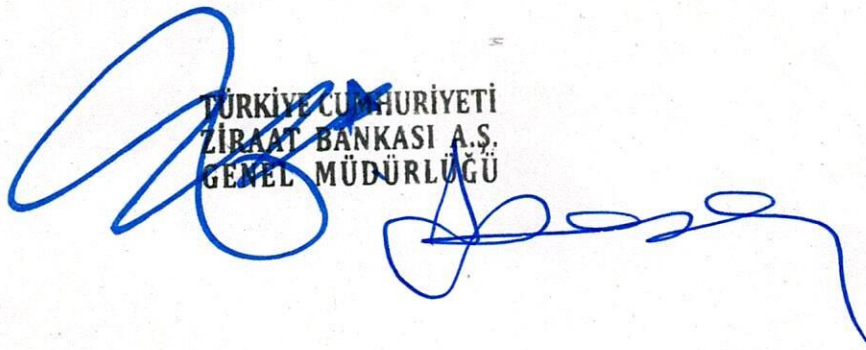 TÜRKİYE CUMHURİYETİ
ZİRAAT BANKASI A.Ş.
GENEL MÜDÜRLÜĞÜ